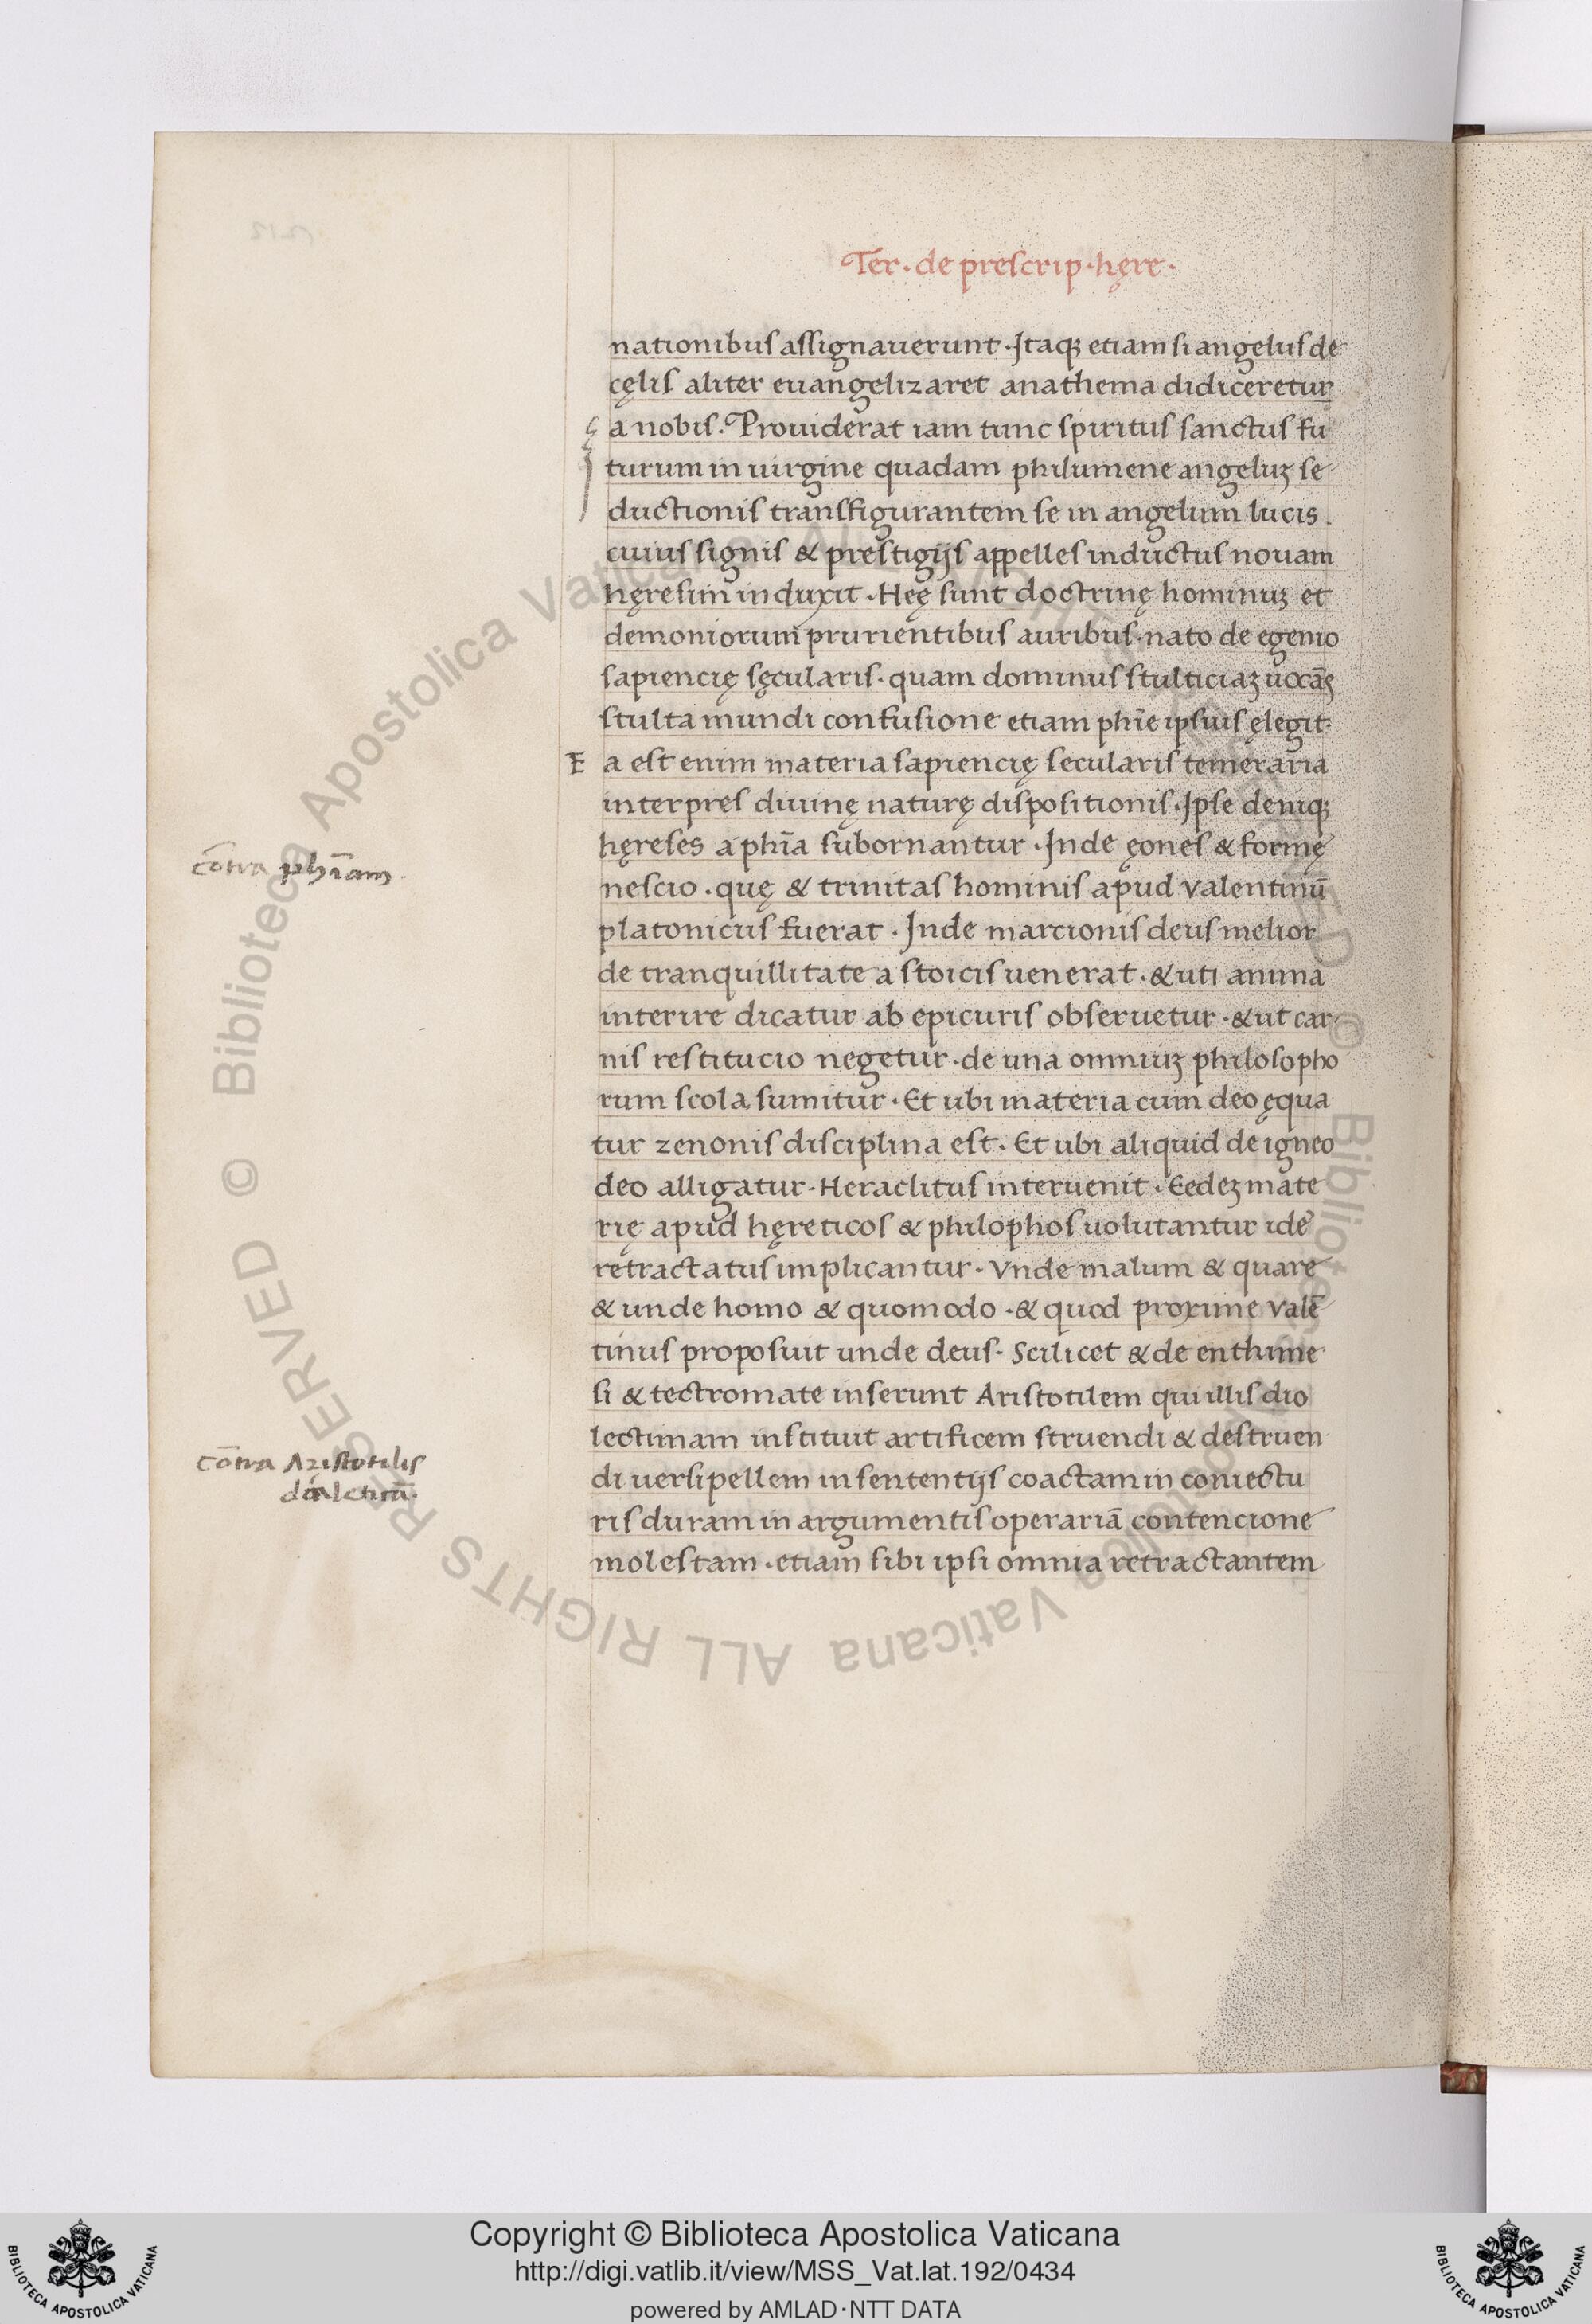 Ter · de prescrip · hęre ·
nationibus assignauerunt · Itaqꝫ etiam si angelus de
cęlis aliter euangelizaret anathema didiceretur
a nobis · Prouiderat iam tunc spiritus sanctus fu
turum in uirgine quadam philumene angeluꝫ se
ductionis transfigurantem se in angelum lucis .
cuius signis & prestigijs appelles inductus nouam
hęresim induxit · Heę sunt doctrinę hominuꝫ et
demoniorum prurientibus auribus · nato de egenio
sapiencię sęcularis · quam dominus stulticiaꝫ uocãs
stulta mundi confusione etiam phīe ipsius ęlegit ·
E a est enim materia sapiencię secularis temeraria
interpres diuinę naturę dispositionis · Ipse deniqꝫ
hęreses a phīa subornantur · Inde ęones & formę
contra phīam
nescio · quę & trinitas hominis apud valentinū
platonicus fuerat · Inde marcionis deus melior
de tranquillitate a stoicis uenerat · & uti anima
interire dicatur ab epicuris obseruetur · & ut car
nis restitucio negetur · de una omniuꝫ philosopho
rum scola sumitur · Et ubi materia cum deo ęqua
tur zenonis disciplina est · Et ubi aliquid de igneo
deo alligatur · Heraclitus interuenit · Eedeꝫ mate
rię apud hęreticos & philophos uolutantur idē
retractatus implicantur · Vnde malum & quare
& unde homo & quomodo · & quod proxime valē
tinus proposuit unde deus · Scilicet & de enthime
si & tectromate inserunt Aristotilem qui illis dio
lectimam instituit artificem struendi & destruen
cōtra Aristotilis
di uersipellem in sententijs coactam in coniectu
dialeticā ·
ris duram in argumentis operariā contencione
molestam · etiam sibi ipsi omnia retractantem
© Biblioteca Apostolica Vaticana ALL RIGHTS RESERVED
Copyright © Biblioteca Apostolica Vaticana
http://digi.vatlib.it/view/MSS_Vat.lat.192/0434
powered by AMLAD·NTT DATA
BIBLIOTECA APOSTOLICA VATICANA
BIBLIOTECA APOSTOLICA VATICANA